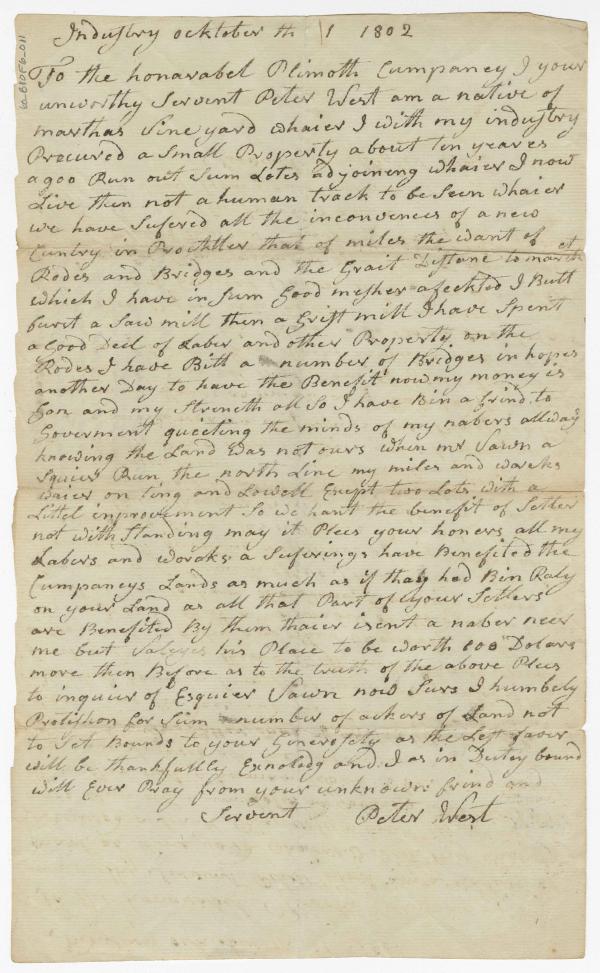 Industry ocktober th 1 1802
60.B10F6_011
To the honarabel Plimoth Cumpaney I your
unworthy Servent Peter West am a native of
marthas Vine yard whaier I with my industry
Procured a Small Property about ten yeares
agoo Run out Sum Lotes adjoining whaier I now
Live then not a human track to be Seen whaier
we have Sufered all the inconvences of a new
Cuntry in that of miles the want of
Rodes and Bridges and the Grait Distone to market
which I have in Sum Good mesher afeckted I Butt
furst a Saw mill then a Grist mill I have Spent
a Good Deil of Laber and other Property on the
Rodes I have Bitt a number of Bridges in hopes
another Day to have the Benefit now my money is
Gon and my Streneth all So I have Bin a frind to
Goverment quieting the minds of my nabers allway
knowing the Land was not ours when mr Sawn a
Squier Run the north Line my miles and warcks
waier on Ting and Lowell Exept two Lots with a
Littel improvement So we hant the benefit of Setler
not with Standing may it Plees your honers all my
Labers and worcks a Suferings have Benefited the
Cumpaneys Lands as much as if thay hed Bin Raly
on your Land as all that Part of your Setlers
are Benefited By them thaier isent a naber neer
me but his Place to be worth 100 Dolars
more then Before as to the truth of the above Plees
to inquier of Esquier Sawn now Surs I humbely
Protishon for Sum number of ackers of Land not
to Set Bounds to your Ginerosety as the Left faver
will be thankfully Exnoledg and I as in Dutey bound
will Ever Pray from your unknown frind and
Servent Peter West